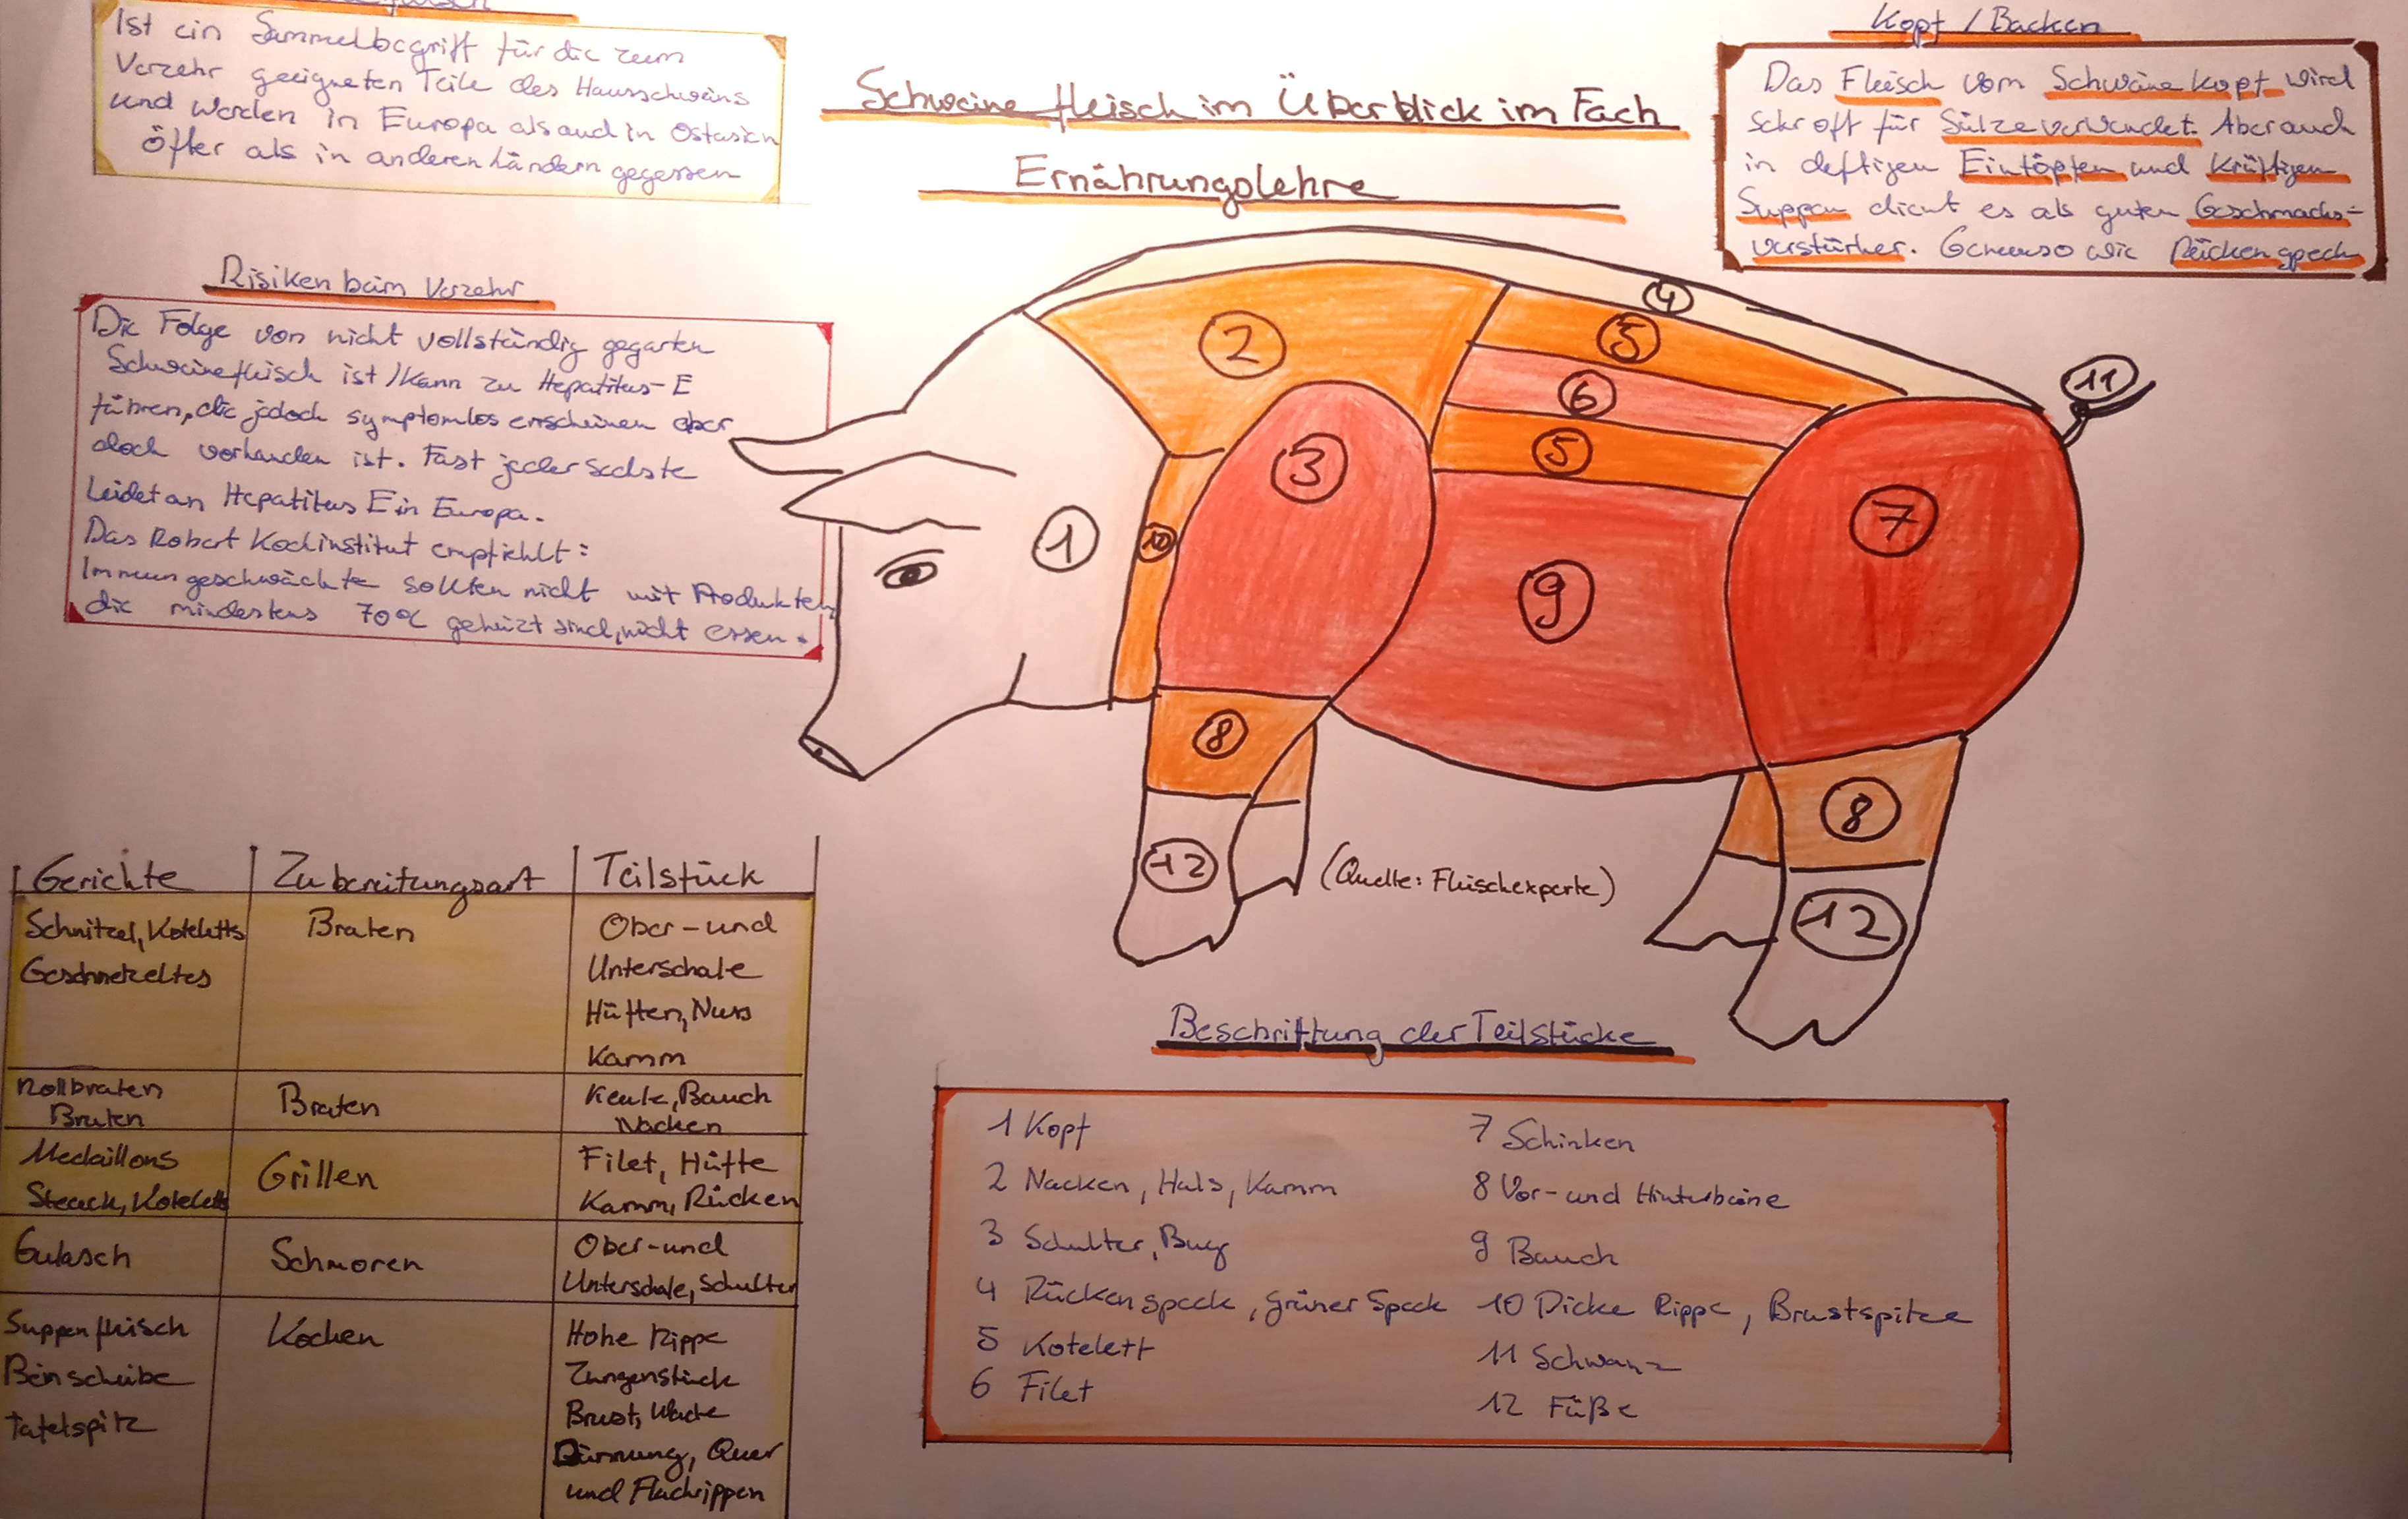 Ist ein Sammelbegriff für die zum
Verzehr geeigneten Teile des Hausschweins
und werden in Europa als auch in Ostasien
öfter als in anderen Ländern gegessen
Schweinefleisch im Überblick im Fach
Ernährungslehre
Kopf / Backen
Das Fleisch vom Schweinekopf wird
sehr oft für Sülze verwendet. Aber auch
in deftigen Eintöpfen und Kräftigen
Suppen dient es als guten Geschmacks-
verstärker. Genauso wie Rückenspeck
Risiken beim Verzehr
Die Folge von nicht vollständig gegarten
Schweinefleisch ist / kann zu Hepatitus-E
führen, die jedoch symptomlos erscheinen aber
doch vorhanden ist. Fast jeder Sechste
Leidet an Hepatitus E in Europa.
Das Robert Kochinstitut empfiehlt:
Immungeschwächte sollten nicht mit Produkten,
die mindestens 70°C geheizt sind, nicht essen.
4
5
2
11
6
3
5
7
1
10
9
8
8
12
12
(Quelle: Fleischexperte)
Gerichte Zubereitungsart Teilstück
Schnitzel, Koteletts Braten Ober-und
Geschnetzeltes Unterschale
Hüften, Nuss
Kamm
Rollbraten Braten Keule, Bauch
Braten Nacken
Medaillons Grillen Filet, Hüfte
Steack, Kotelett Kamm, Rücken
Gulasch Schmoren Ober-und
Unterschale, Schulter
Suppenfleisch Kochen Hohe Rippe
Beinscheibe Zungenstück
Tafelspitz Brust, Wade
Dünnung, Quer
und Flachrippen
Beschriftung der Teilstücke
1 Kopf
2 Nacken, Hals, Kamm
3 Schulter, Bug
4 Rückenspeck, grüner Speck
5 Kotelett
6 Filet
7 Schinken
8 Vor-und Hinterbeine
9 Bauch
10 Dicke Rippe, Brustspitze
11 Schwanz
12 Füße